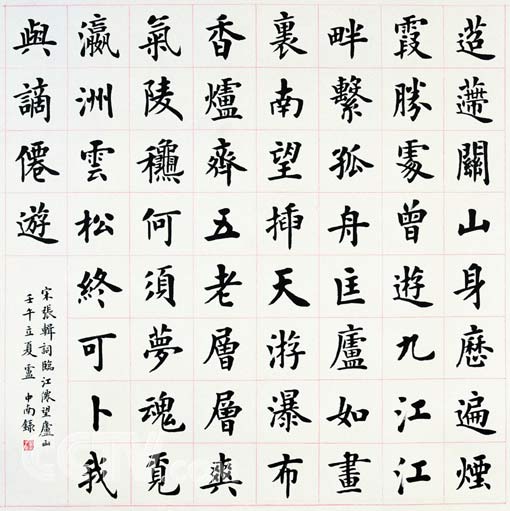 迢遰關山身歷遍煙
霞勝處曾遊九江江
畔繫孤舟匡廬如畫
裏南望插天浮瀑布
香爐齊五老層層爽
氣陵龝何須夢魂覓
瀛洲雲松終可卜我
與謫僊遊
宋張輯詞臨江僊望廬山
壬午立夏盧中南錄